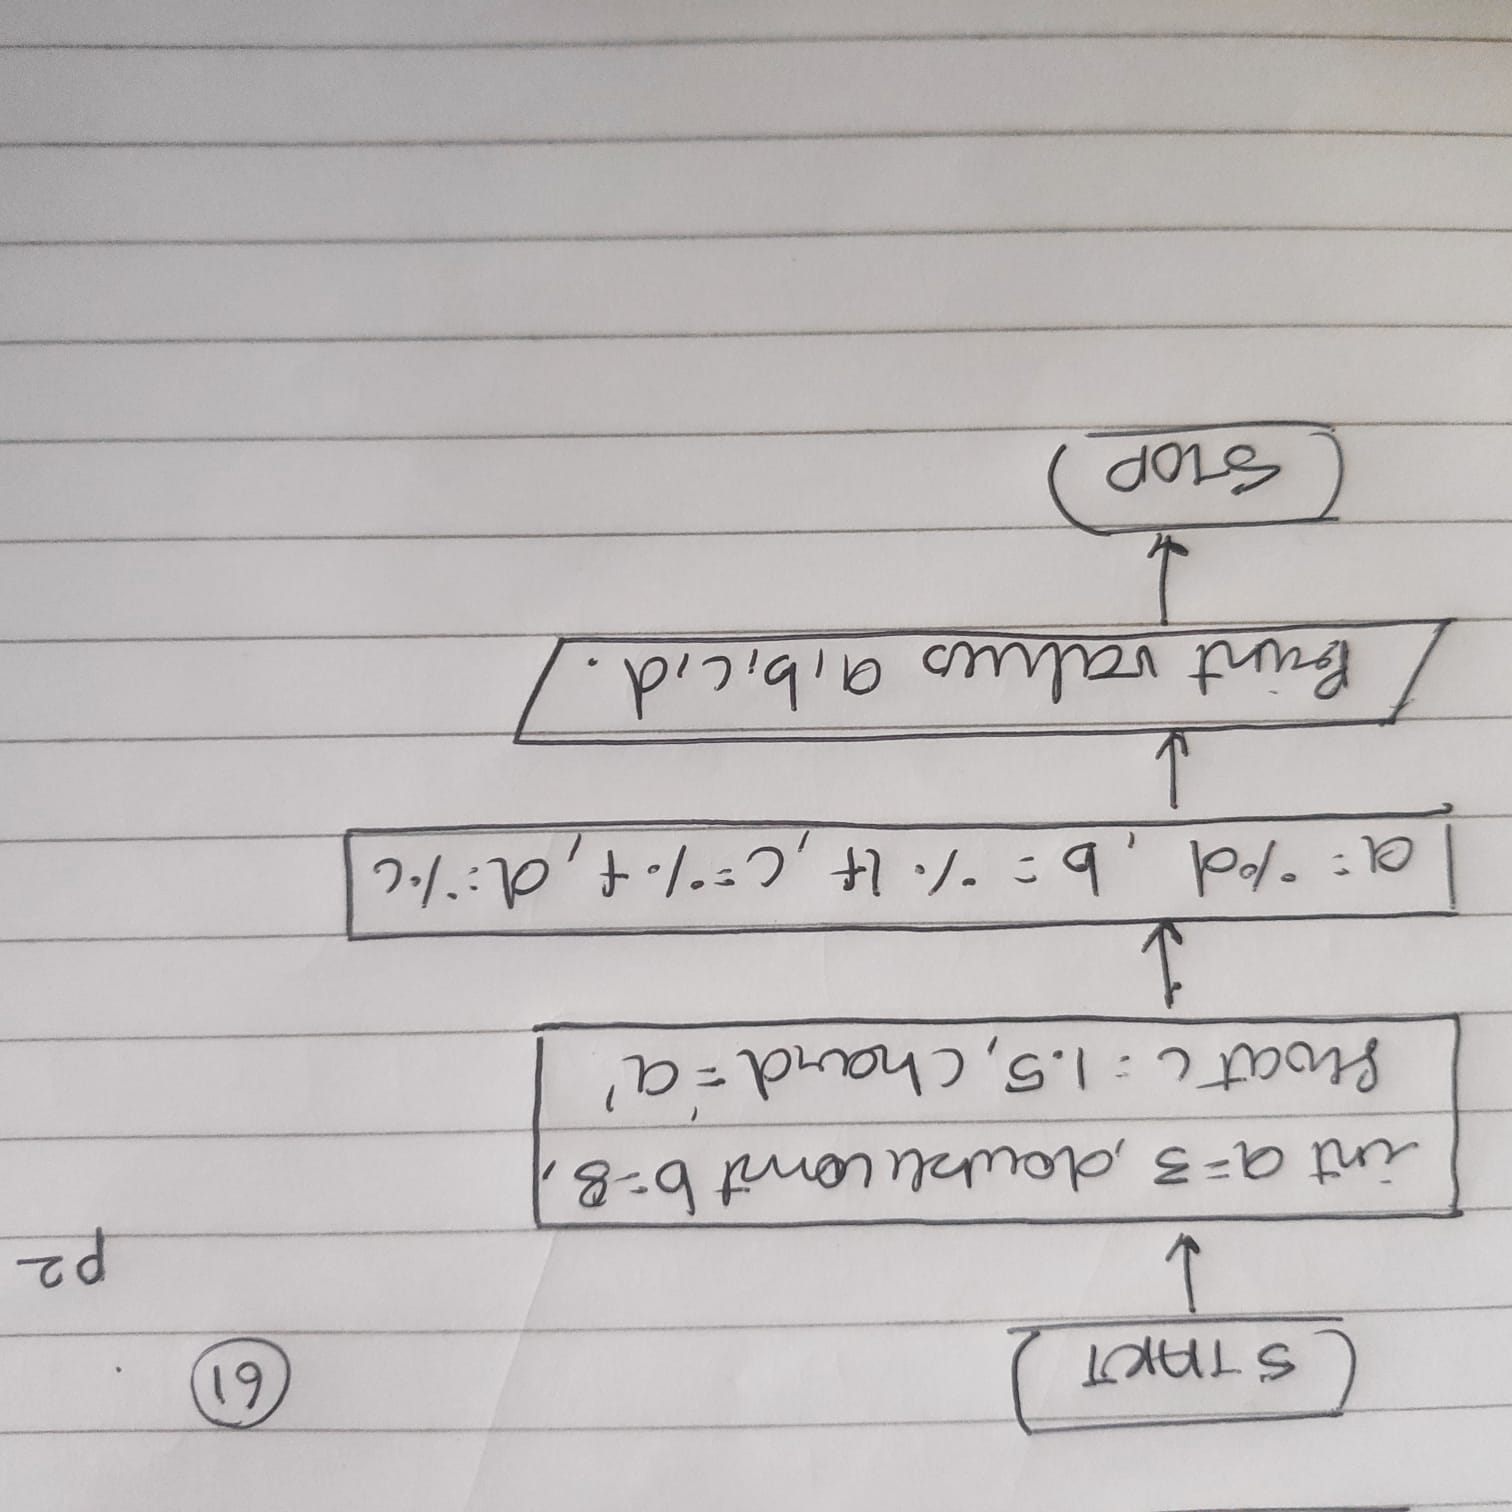 START
61
p2
int a=3, double const b=8,
float c=1.5, char d='a'
a=%d, b=%lf, c=%f, d=%c
Print values a,b,c,d.
STOP